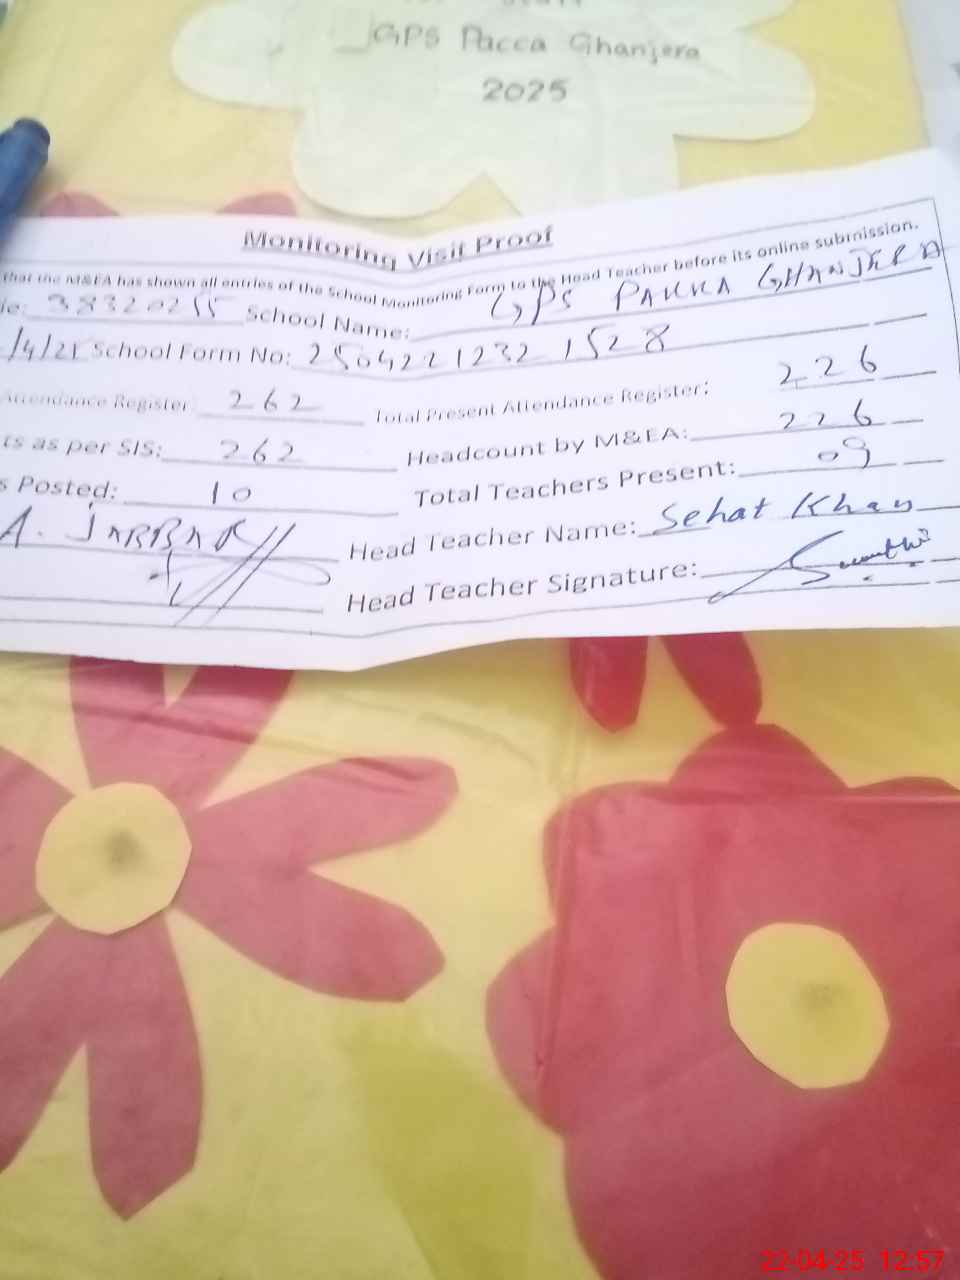 GPS Pacca Ghanjera
2025
Monitoring Visit Proof
that the M&EA has shown all entries of the School Monitoring Form to the Head Teacher before its online submission.
School Name: GPS PAKKA GHANJERA
School Form No: 2504221232 1528
Attendance Register: 262 Total Present Attendance Register: 226
ts as per SIS: 262 Headcount by M&EA: 226
s Posted: 10 Total Teachers Present: 09
A. JABBAR Head Teacher Name: Sehat Khan
Head Teacher Signature:
22-04-25 12:57